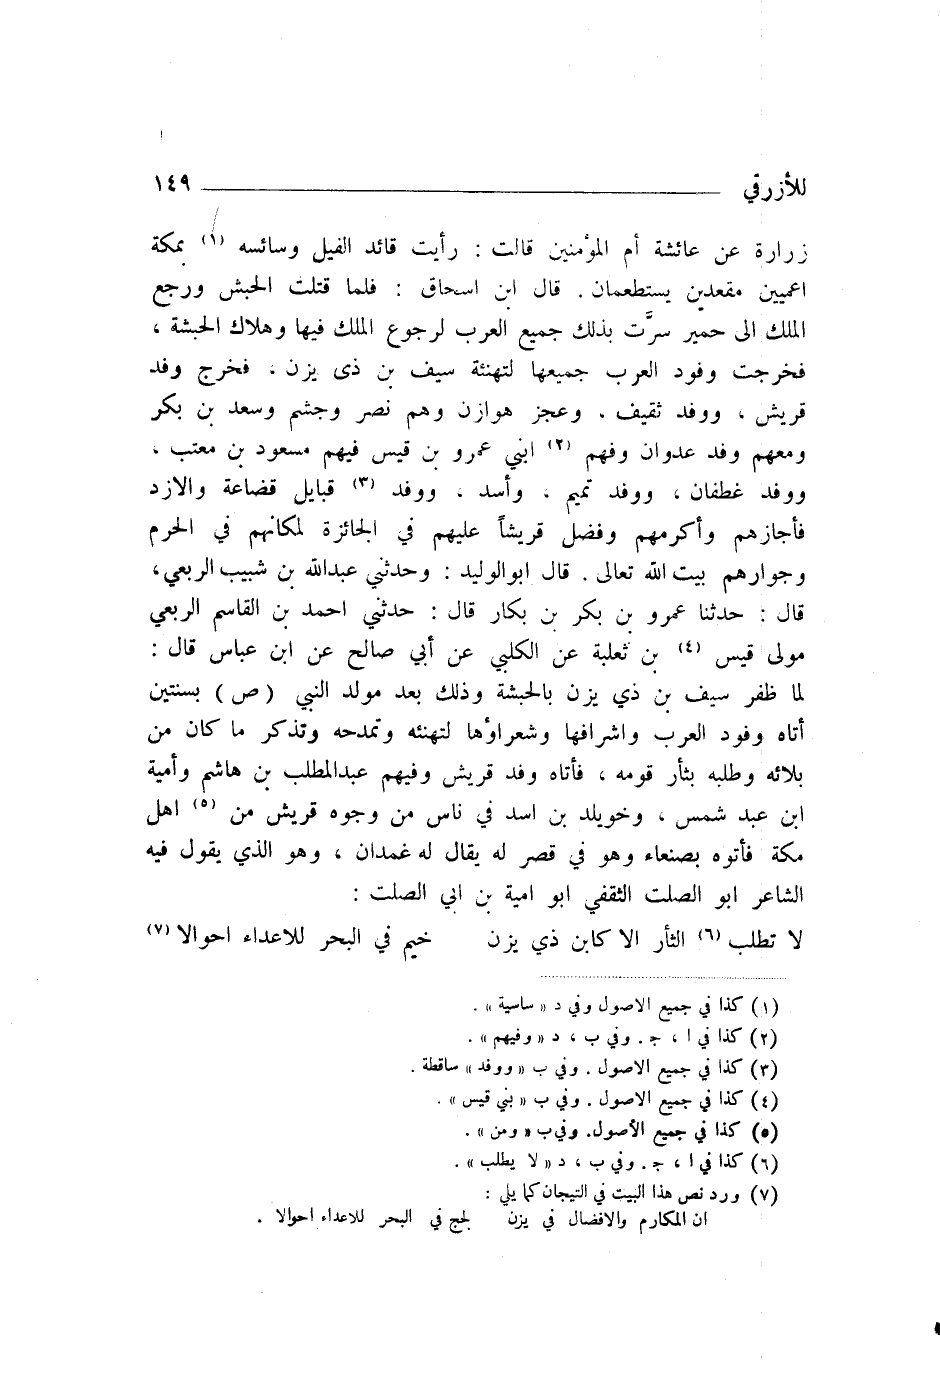 للأزرقي ١٤٩
زرارة عن عائشة أم المؤمنين قالت : رأيت قائد الفيل وسائسه (١) بمكة
اعميين مقعدين يستطعمان . قال ابن اسحاق : فلما قتلت الحبش ورجع
الملك الى حمير سرَّت بذلك جميع العرب لرجوع الملك فيها وهلاك الحبشة ،
فخرجت وفود العرب جميعها لتهنئة سيف بن ذى يزن ، فخرج وفد
قريش ، ووفد ثقيف . وعجز هوازن وهم نصر وجشم وسعد بن بكر
ومعهم وفد عدوان وفهم (٢) ابني عمرو بن قيس فيهم مسعود بن معتب ،
ووفد غطفان ، ووفد تميم ، وأسد ، ووفد (٣) قبايل قضاعة والازد
فأجازهم وأكرمهم وفضل قريشاً عليهم في الجائزة لمكانهم في الحرم
وجوارهم بيت الله تعالى . قال ابوالوليد : وحدثني عبدالله بن شبيب الربعي،
قال : حدثنا عمرو بن بكر بن بكار قال : حدثني احمد بن القاسم الربعي
مولى قيس (٤) بن ثعلبة عن الكلبي عن أبي صالح عن ابن عباس قال :
لما ظفر سيف بن ذي يزن بالحبشة وذلك بعد مولد النبي ( ص ) بسنتين
أتاه وفود العرب واشرافها وشعراؤها لتهنئه وتمدحه وتذكر ما كان من
بلائه وطلبه بثأر قومه ، فأتاه وفد قريش وفيهم عبدالمطلب بن هاشم وأمية
ابن عبد شمس ، وخويلد بن اسد في ناس من وجوه قريش من (٥) اهل
مكة فأتوه بصنعاء وهو في قصر له يقال له غمدان ، وهو الذي يقول فيه
الشاعر ابو الصلت الثقفي ابو امية بن ابي الصلت :
لا تطلب (٦) الثأر الا كابن ذي يزن خيم في البحر للاعداء احوالا (٧)
(١) كذا في جميع الاصول وفي د « ساسية » .
(٢) كذا في ا ، ج . وفي ب ، د « وفيهم » .
(٣) كذا في جميع الاصول . وفي ب « ووفد » ساقطة .
(٤) كذا في جميع الاصول . وفي ب « بني قيس » .
(٥) كذا في جميع الأصول. وفي ب « ومن » .
(٦) كذا في ا ، ج . وفي ب ، د « لا يطلب » .
(٧) ورد نص هذا البيت في التيجان كما يلي :
ان المكارم والافضال في يزن لجج في البحر للاعداء احوالا .